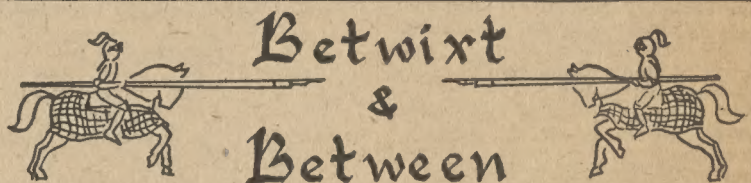 Betwixt
&
Between